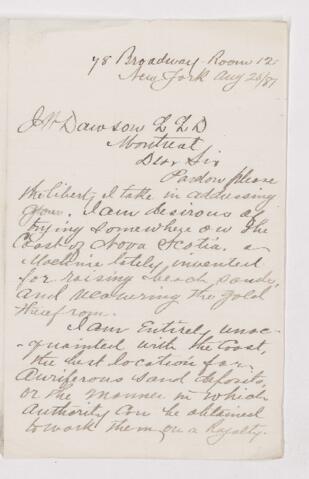 78 Broadway Room 12
New York Aug 26/87
J W Dawson L L D
Montreal
Dear Sir
Pardon please
the liberty I take in addressing
you. I am desirous of
trying somewhere on the
Coast of Nova Scotia. a
Machine lately invented
for raising beach sands,
and recovering the gold
therefrom.
I am Entirely unac-
-quainted with the Coast,
the best location for
Auriferous sand deposits,
or the manner in which
Authority can be obtained
to work them on a Royalty.